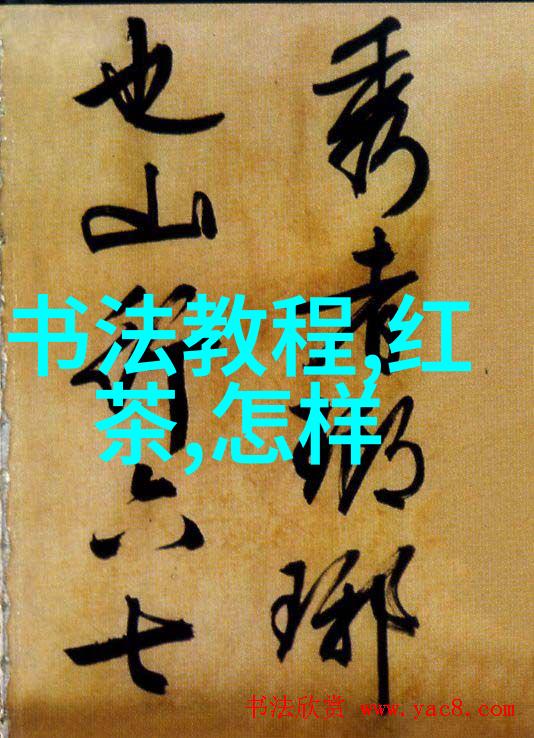 秀者瑯琊
也山行六七
书法教程,红
茶,怎样
书法欣赏 www.yac8.com